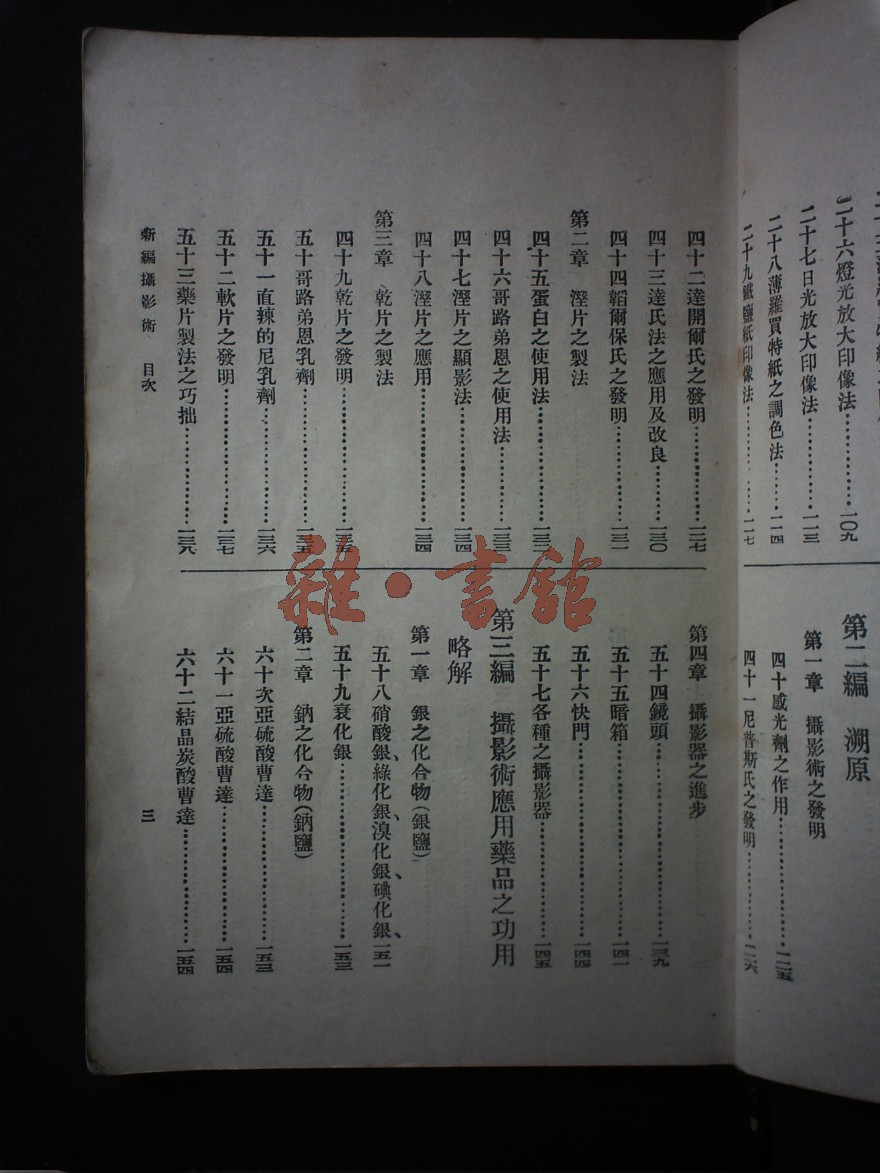 二十六燈光放大印像法…………一〇九
二十七日光放大印像法…………一一三
二十八薄羅買特紙之調色法……一一四
二十九鐵鹽紙印像法…………一一七
第二編　溯原
第一章　攝影術之發明
四十感光劑之作用…………一二五
四十一尼普斯氏之發明…………一二六
四十二達開爾氏之發明…………一二七
四十三達氏法之應用及改良……一三〇
四十四韜爾保氏之發明…………一三一
第二章　溼片之製法
四十五蛋白之使用法…………一三二
四十六哥路弟恩之使用法……一三三
四十七溼片之顯影法…………一三四
四十八溼片之應用…………一三四
第三章　乾片之製法
四十九乾片之發明…………
五十哥路弟恩乳劑…………一三五
五十一直辣的尼乳劑…………一三六
五十二軟片之發明…………一三七
五十三藥片製法之巧拙…………一三八
第四章　攝影器之進步
五十四鏡頭…………一三九
五十五暗箱…………一四一
五十六快門…………一四四
五十七各種之攝影器…………一四五
第三編　攝影術應用藥品之功用
略解
第一章　銀之化合物(銀鹽)
五十八硝酸銀、綠化銀、溴化銀、碘化銀、一五一
五十九衰化銀…………一五三
第二章　鈉之化合物(鈉鹽)
六十次亞硫酸曹達…………一五三
六十一亞硫酸曹達…………一五四
六十二結晶炭酸曹達…………一五四
新編攝影術　目次
三
雜·書館